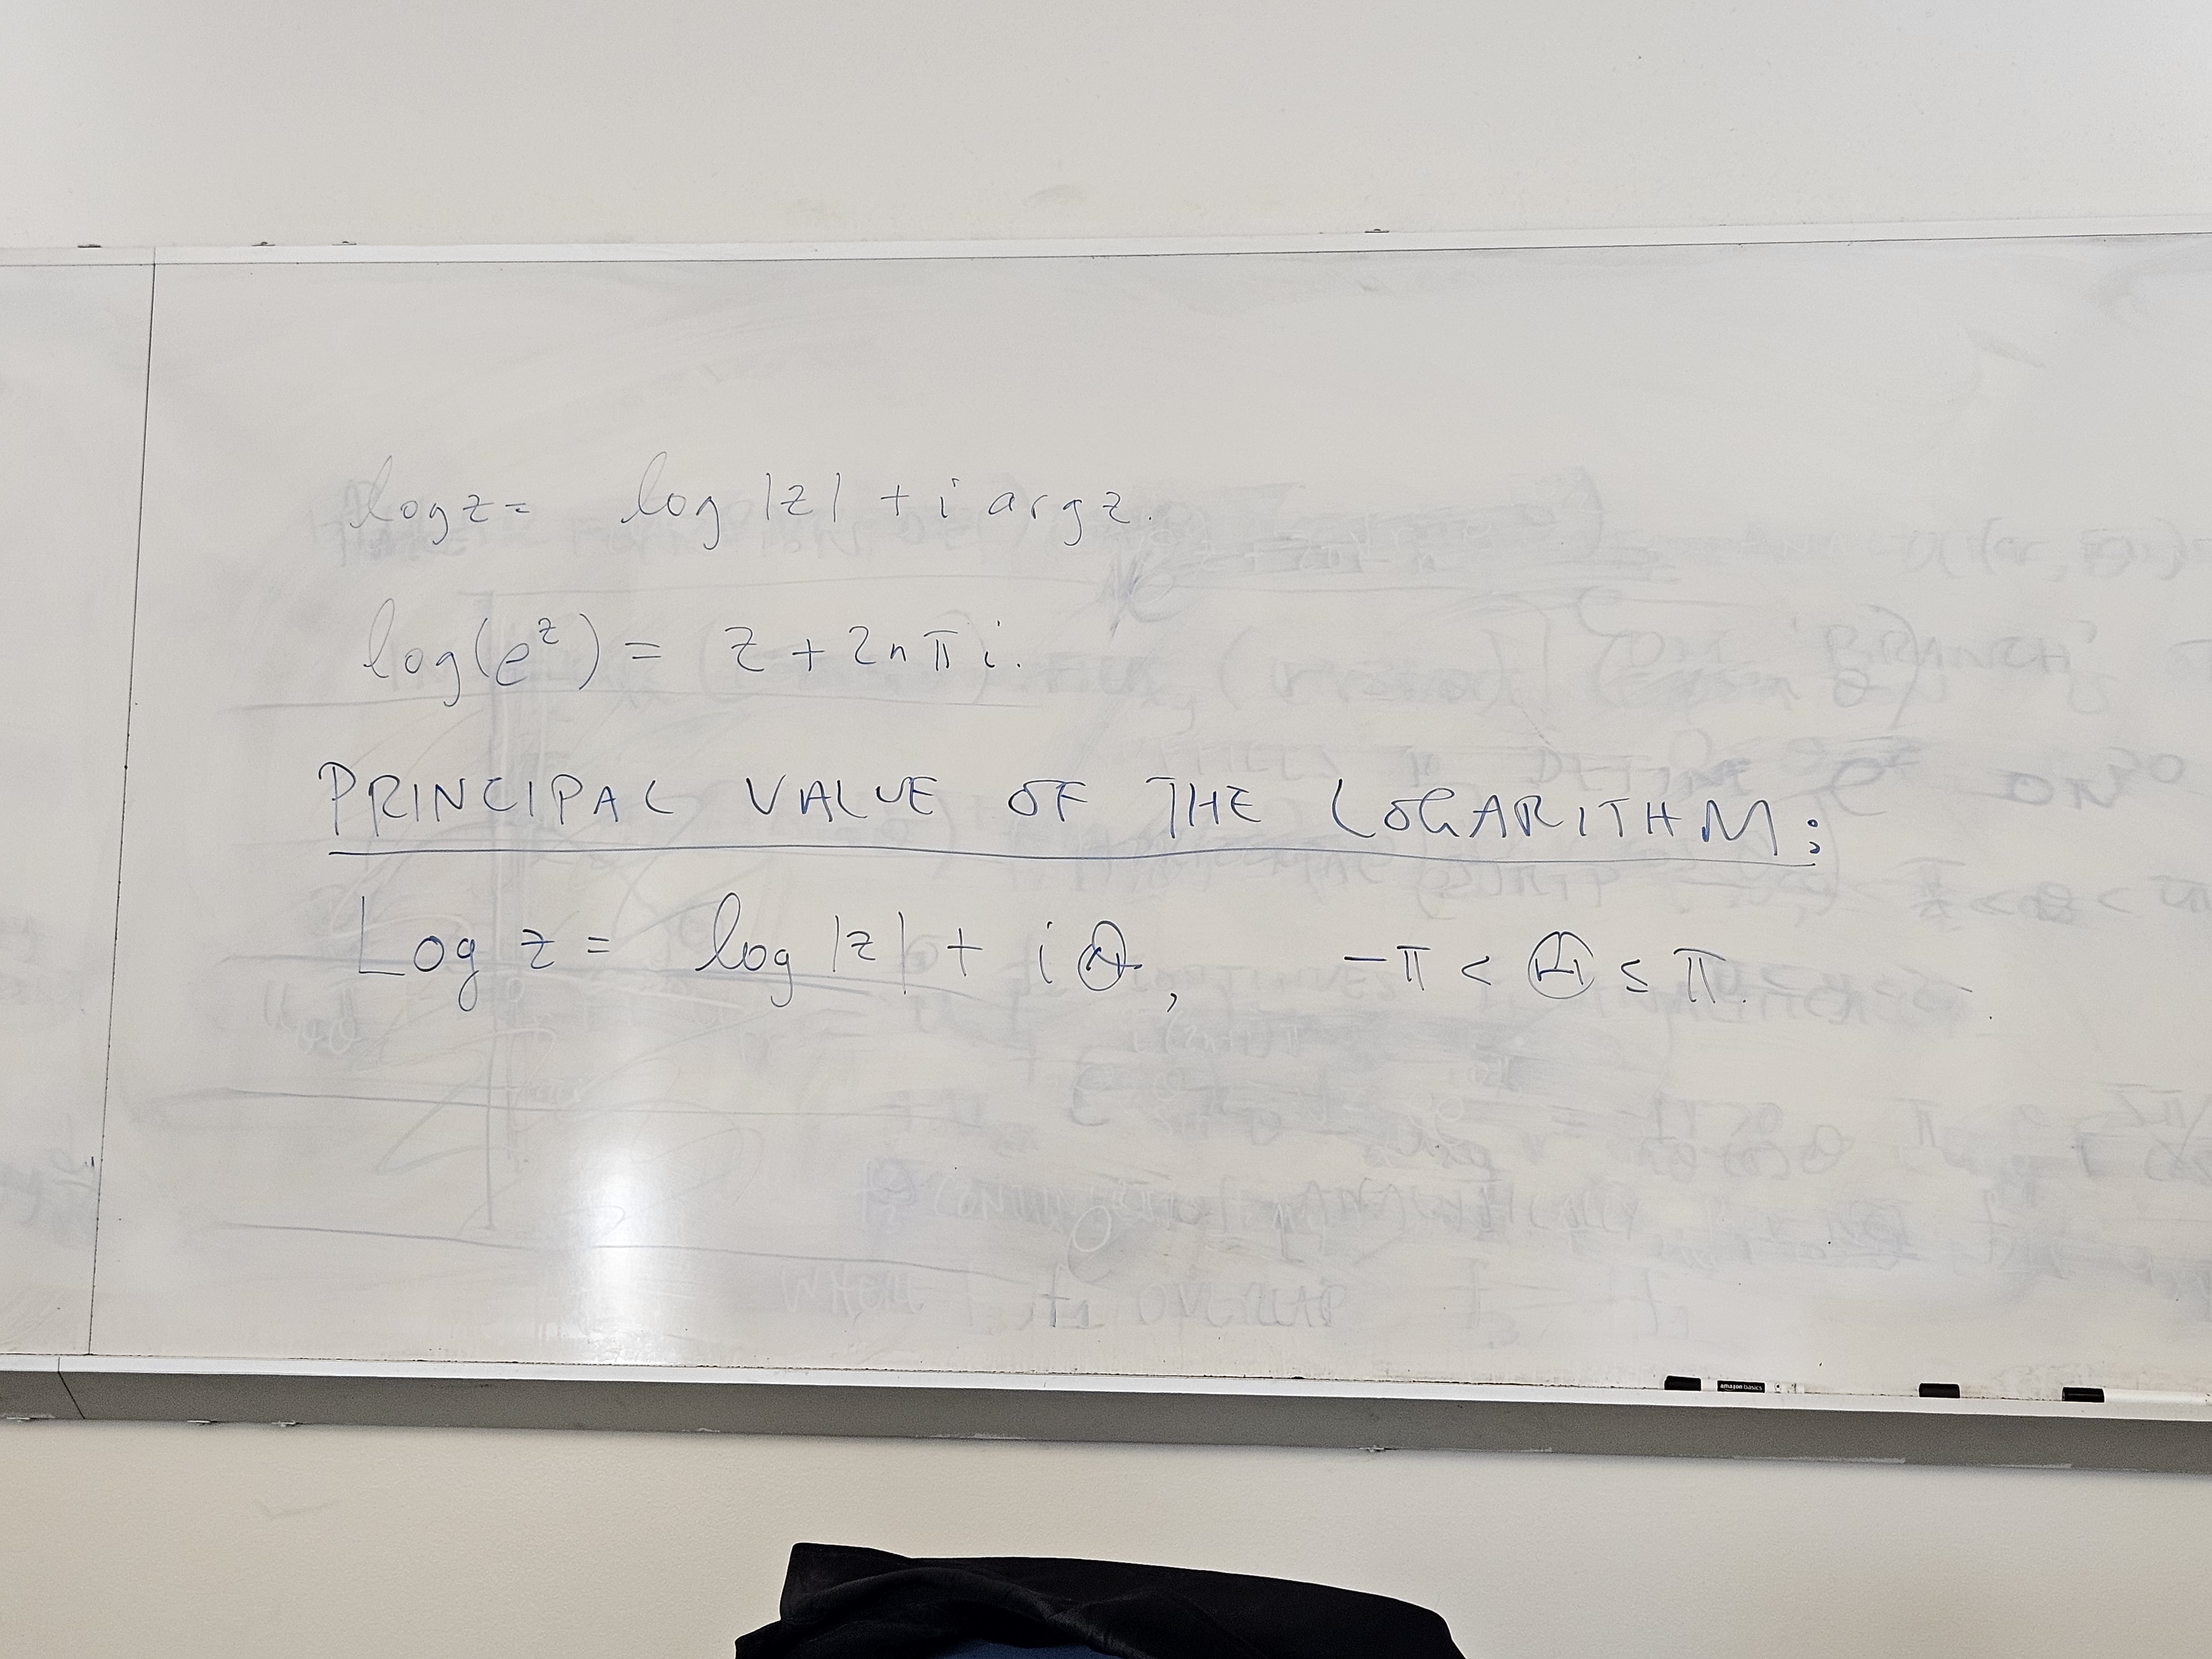 log z = log |z| + i arg z.
log(e^z) = z + 2nπi.
PRINCIPAL VALUE OF THE LOGARITHM:
Log z = log |z| + iΘ, -π < Θ ≤ π.
amazon basics